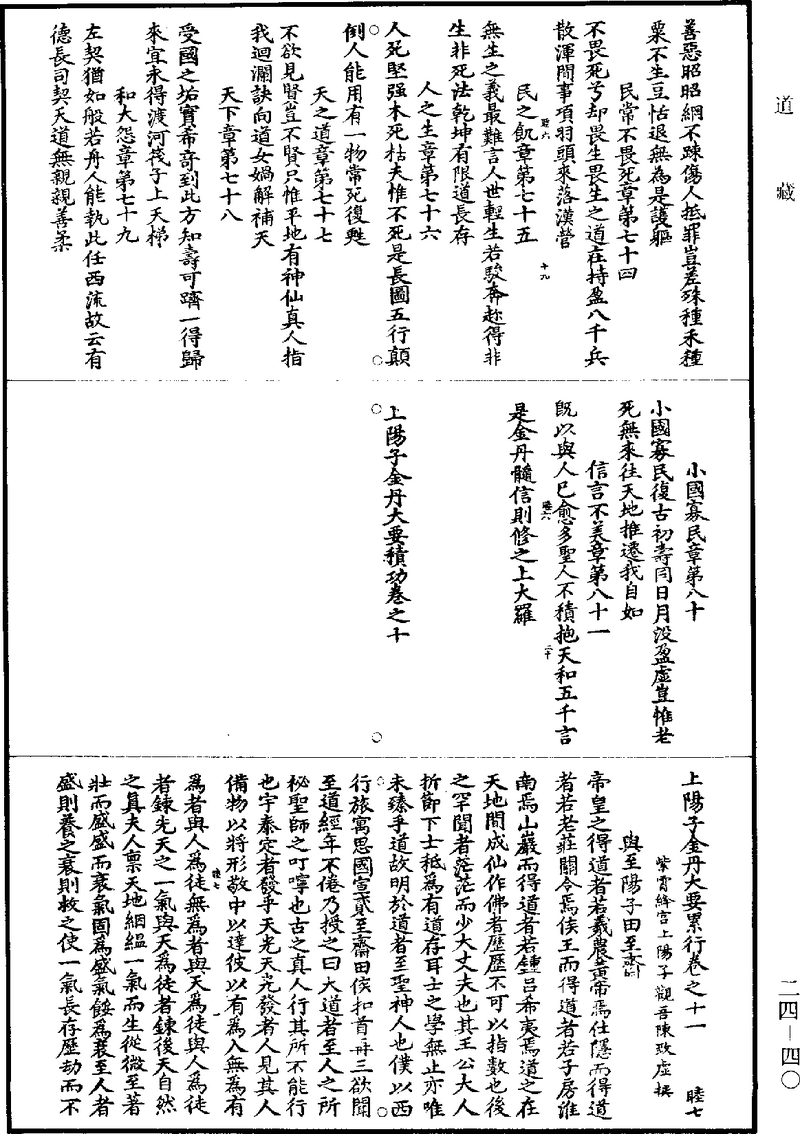 道藏
善惡昭昭網不踈傷人抵罪豈差殊種禾種
粟不生豆怙退無為是護軀
民常不畏死章第七十四
不畏死兮却畏生畏生之道在持盈八千兵
散渾閒事項羽頭來落漢營
民之飢章第七十五
無生之義最難言人世輕生若駿奔趂得非
生非死法乾坤有限道長存
人之生章第七十六
人死堅强木死枯夫惟不死是長圖五行顛
倒人能用有一物常死復甦
天之道章第七十七
不欲見賢豈不賢只惟平地有神仙真人指
我迴瀾訣向道女媧解補天
天下章第七十八
受國之垢實希奇到此方知壽可躋一得歸
來宜永得渡河筏子上天梯
和大怨章第七十九
左契猶如般若舟人能執此任西流故云有
德長司契天道無親親善柔
小國寡民章第八十
小國寡民復古初壽同日月没盈虛豈惟老
死無來往天地推遷我自如
信言不美章第八十一
旣以與人已愈多聖人不積抱天和五千言
是金丹髓信則修之上大羅
上陽子金丹大要積功卷之十
上陽子金丹大要累行卷之十一 睦七
紫霄絳宮上陽子觀吾陳致虛撰
與至陽子田至齋
帝皇之得道者若羲農黃帝焉仕隱而得道
者若老莊關令焉侯王而得道者若子房淮
南焉山巖而得道者若鍾呂希夷焉道之在
天地間成仙作佛者歷歷不可以指數也後
之罕聞者茫茫而少大丈夫也其王公大人
折節下士秪為有道存耳士之學無止亦唯
未臻乎道故明於道者至聖神人也僕以西
行旅寓思國宣貳至齋田侯扣首再三欲聞
至道經年不倦乃授之曰大道者至人之所
祕聖師之叮嚀也古之真人行其所不能行
也宇泰定者發乎天光天光發者人見其人
備物以將形敬中以達彼以有為入無為有
為者與人為徒無為者與天為徒與人為徒
者鍊先天之一氣與天為徒者鍊後天自然
之真夫人稟天地絪緼一氣而生從微至著
壯而盛盛而衰氣固為盛氣餒為衰至人者
盛則養之衰則救之使一氣長存歷劫而不
二四－四〇